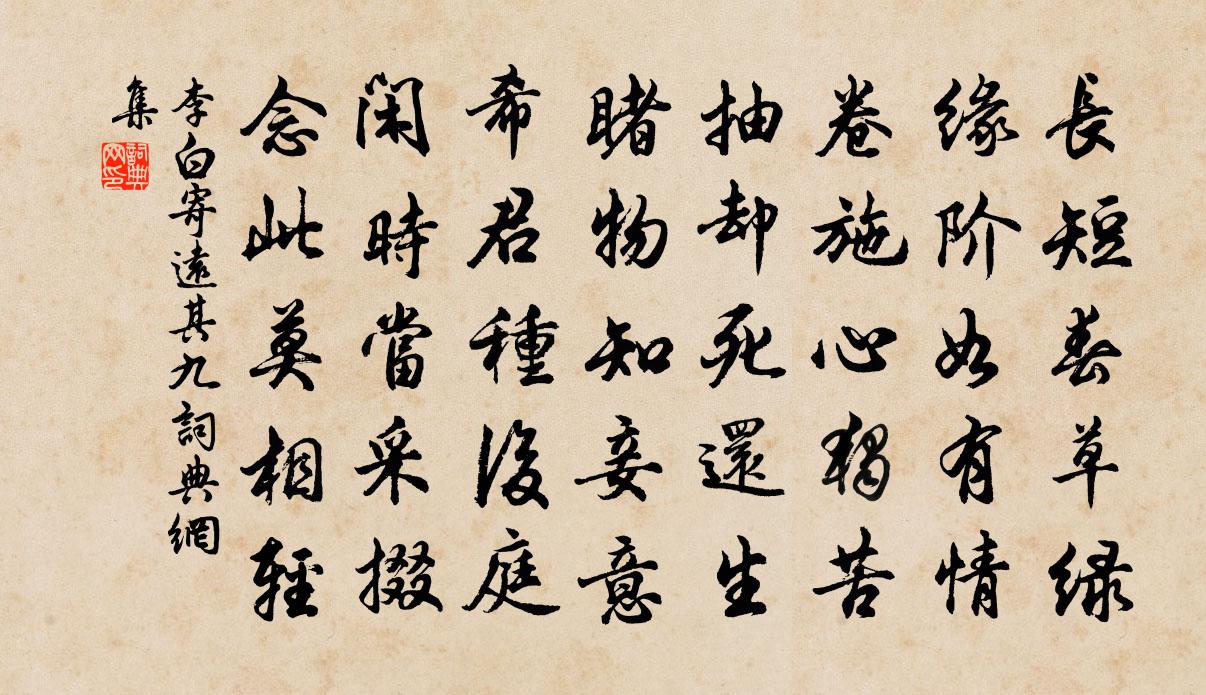 長短春草緑
缘阶如有情
卷施心獨苦
抽却死還生
睹物知妾意
希君種後庭
閑時當采掇
念此莫相輕
李白寄遠其九詞典網
集
詞典
网印